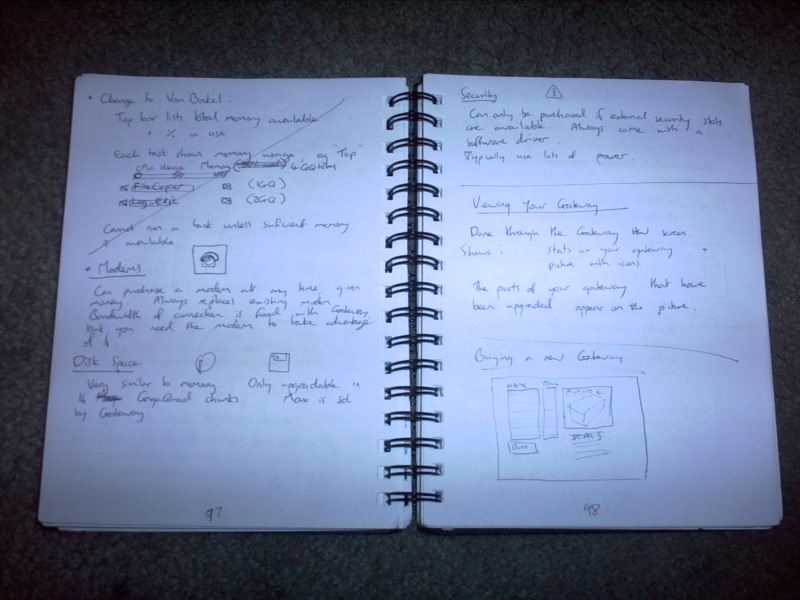 • Change to Van Bakel :
Top bar lists total memory available
+ % in use
Each task shows memory usage eg "Top"
CPU Usage Memory 4 GQ total
File Copier (1GQ)
Log-Edit (2GQ)
Cannot run a task unless suficient memory
is available
• Modems
Can purchase a modem at any time, given
money. Always replaces existing modem.
Bandwidth of connection is fixed with Gateway,
but you need the modem to take advantage
of it.
Disk Space
Very similar to memory. Only upgradable in
16 GigaQuad chunks. Max is set
by Gateway.
97
Security
Can only be purchased if external security slots
are available. Always come with a
software driver.
Typically use lots of power.
Viewing Your Gateway
Done through the Gateway HW screen.
Shows : stats on your gateway +
picture with icons
The parts of your gateway that have
been upgraded appear on the picture.
Buying a new Gateway
NAME PRICE PICTURE
STATS
BUY
98